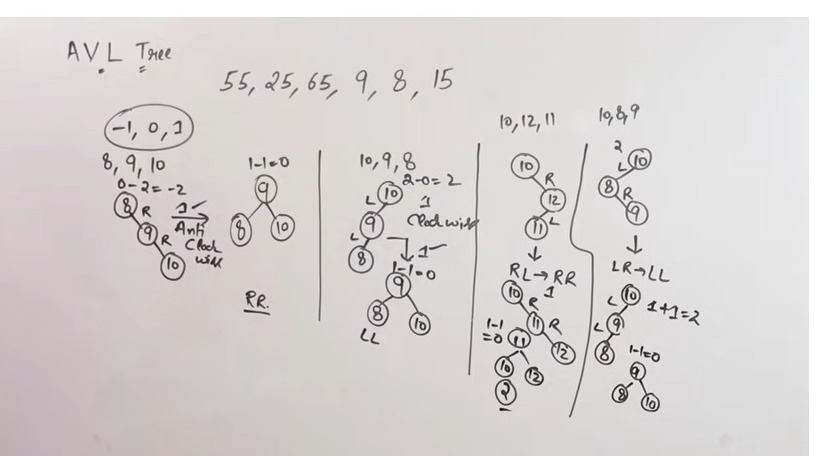 AVL Tree
55, 25, 65, 9, 8, 15
-1, 0, 1
8, 9, 10
0-2=-2
8
R
9
R
10
1
Anti
Clock
wise
1-1=0
9
8
10
RR.
10, 9, 8
2-0=2
10
L
9
L
8
1
Clockwise
1
1-1=0
9
8
10
LL
10, 12, 11
10
R
12
L
11
RL→RR
1
10
R
11
R
12
1-1
=0
11
10
12
2
10, 8, 9
2
10
L
8
R
9
LR→LL
10
L
9
L
8
1+1=2
1-1=0
9
8
10